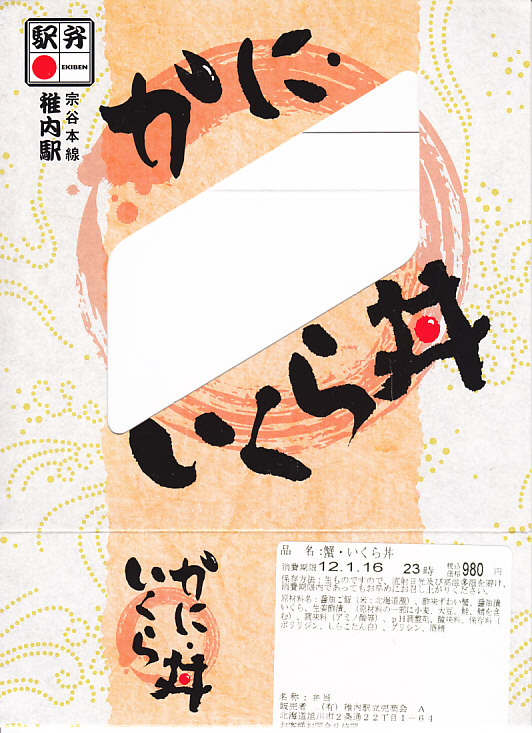 駅弁
EKIBEN
宗谷本線
稚内駅
かに・
いくら丼
かに・
いくら丼
品 名:蟹・いくら丼
消費期限 12.1.16 23時 税込価格 980円
保存方法:生ものですので、直射日光及び高温多湿を避け、
消費期限内であってもお早めにお召し上がりください。
原材料名:醤油ご飯(米:北海道産)、酢味ずわい蟹、醤油漬
いくら、生姜酢漬、(原材料の一部に小麦、大豆、鮭、鯖を含
む)、調味料(アミノ酸等)、pH調整剤、酸味料、保存料(
ポリリジン、しらこたん白)、グリシン、酒精
名称:弁当
販売者 (有)稚内駅立売商会 A
北海道旭川市2条通22丁目1-64